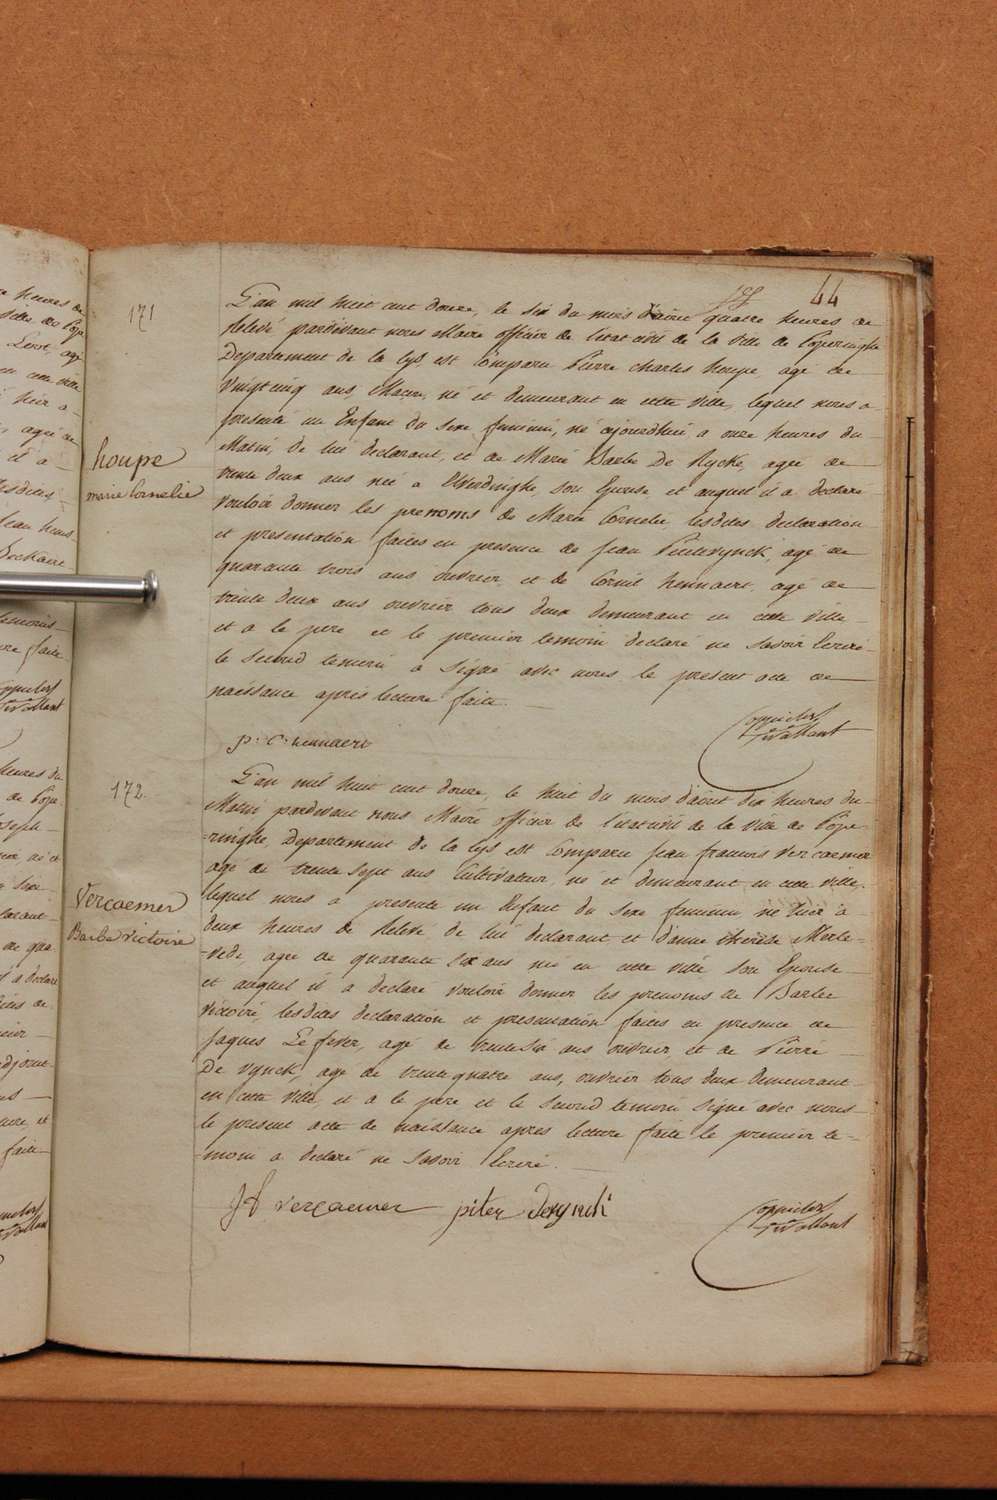 44
171
L'an mil huit cent douze, le six du mois d'aout quatre heures de
Relevé pardevant nous Maire officier de l'etat civil de la ville de Poperinghe
Departement de la Lys, est Comparu Pierre Charles houpe agé de
Vingtcinq ans, Macon, né et demeurant en cette ville, lequel nous a
presenté un Enfant du sexe feminin, né aujourdhui a onze heures du
Matin, de lui declarant, et de Marie Barbe De Rycke, agée de
trente deux ans née a Elverdinghe, son Epouse et auquel il a declaré
vouloir donner les prenoms de Marie Cornelie, lesdites declaration
et presentation faites en presence de Jean Pentevynck, agé de
quarante trois ans ouvrier, et de Cornil hennaert, agé de
trente deux ans ouvrier tous deux demeurant en cette ville
et a le pere et le premier temoin declaré ne savoir Ecrire
le second temoin a signé avec nous le present acte de
naissance après lecture faite.
houpe
marie Cornelie
p: C: hennaert
172.
L'an mil huit cent douze, le huit du mois d'août dix heures du
Matin pardevant nous Maire officier de l'etat civil de la ville de Pope-
-ringhe, Departement de la Lys est Comparu Jean francois Vercaemer
agé de trente sept ans Cultivateur, né et demeurant en cette ville,
lequel nous a presenté un Enfant du sexe feminin né hier à
deux heures de Relevé, de lui declarant et d'anne thérèse Merle-
-vede, agée de quarante six ans née en cette ville son Epouse
et auquel il a declaré vouloir donner les prenoms de Barbe
Victoire, lesdites declaration et presentation faites en presence de
Jaques Lefever, agé de trente six ans ouvrier, et de Pierre
De Vynck, agé de trente quatre ans, ouvrier tous deux demeurant
en cette ville, et a le pere et le second temoin signé avec nous
le present acte de naissance après lecture faite le premier te-
-moin a declaré ne savoir Ecrire.
Vercaemer
Barbe victoire
JF vercaemer
piter Devynck